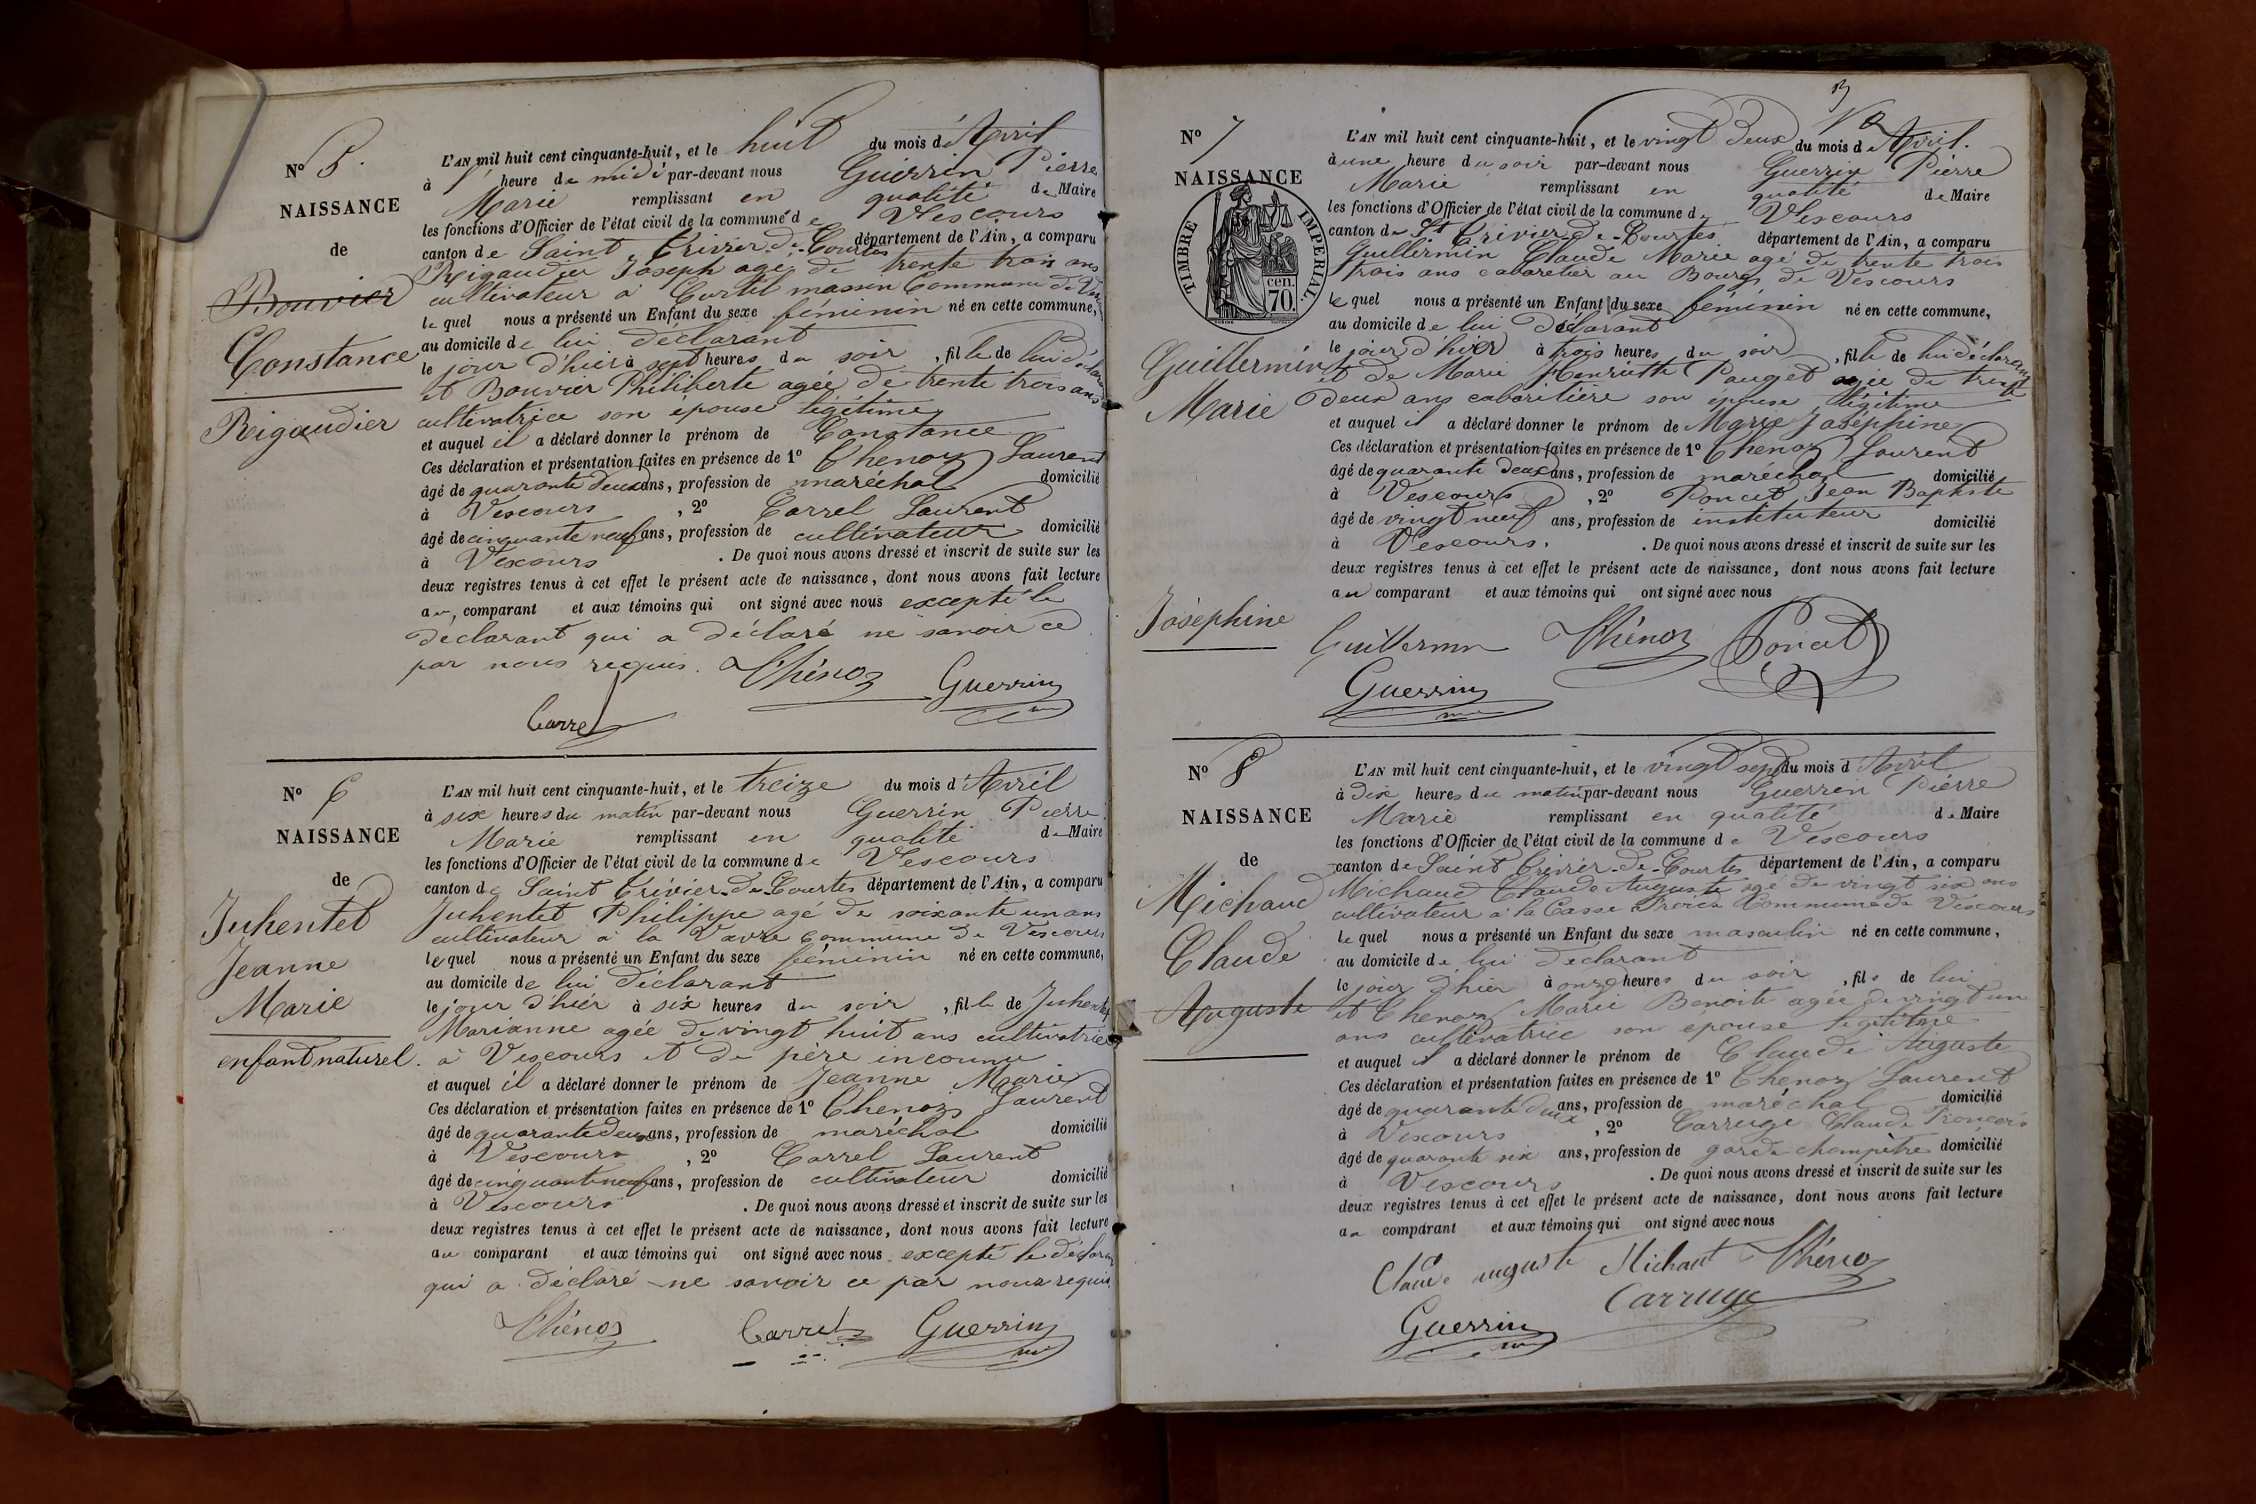 N° 5.
NAISSANCE
de
Bouvier
Constance
Rigaudier
L'AN mil huit cent cinquante-huit, et le huit du mois d'Avril
à 1 heure de midi par-devant nous Guerrin Pierre
Marie remplissant en qualité de Maire
les fonctions d'Officier de l'état civil de la commune de Vescours
canton de Saint Trivier-de-Courtes département de l'Ain, a comparu
Rigaudier Joseph agé de trente trois ans
cultivateur à Curtil masson Commune de
le quel nous a présenté un Enfant du sexe féminin né en cette commune,
au domicile de lui déclarant
le jour d'hier à sept heures du soir, fille de lui
et Bouvier Philiberte agée de trente trois ans
cultivatrice son épouse légitime
et auquel il a déclaré donner le prénom de Constance
Ces déclaration et présentation faites en présence de 1° Chenoz Laurent
âgé de quarante deux ans, profession de maréchal domicilié
à Vescours, 2° Carrel Laurent
âgé de cinquante neuf ans, profession de cultivateur domicilié
à Vescours. De quoi nous avons dressé et inscrit de suite sur les
deux registres tenus à cet effet le présent acte de naissance, dont nous avons fait lecture
au comparant et aux témoins qui ont signé avec nous excepté le
déclarant qui a déclaré ne savoir ce
par nous requis. Chénoz Guerrin
Carrel
N° 6
NAISSANCE
de
Juhentet
Jeanne
Marie
enfant naturel.
L'AN mil huit cent cinquante-huit, et le treize du mois d'Avril
à six heures du matin par-devant nous Guerrin Pierre
Marie remplissant en qualité de Maire
les fonctions d'Officier de l'état civil de la commune de Vescours
canton de Saint Trivier-de-Courtes département de l'Ain, a comparu
Juhentet Philippe agé de soixante un ans
cultivateur à la Vavre commune de Vescours
le quel nous a présenté un Enfant du sexe féminin né en cette commune,
au domicile de lui déclarant
le jour d'hier à six heures du soir, fille de Juhentet
Marianne agée de vingt huit ans cultivatrice
à Vescours et de père inconnu
et auquel il a déclaré donner le prénom de Jeanne Marie
Ces déclaration et présentation faites en présence de 1° Chenoz Laurent
âgé de quarante deux ans, profession de maréchal domicilié
à Vescours, 2° Carrel Laurent
âgé de cinquante neuf ans, profession de cultivateur domicilié
à Vescours. De quoi nous avons dressé et inscrit de suite sur les
deux registres tenus à cet effet le présent acte de naissance, dont nous avons fait lecture
au comparant et aux témoins qui ont signé avec nous excepté le déclarant
qui a déclaré ne savoir ce par nous requis
Chénoz Carrel Guerrin
N° 7
NAISSANCE
TIMBRE IMPERIAL.
cen. 70.
Guillermin
Marie
Joséphine
L'AN mil huit cent cinquante-huit, et le vingt deux du mois d'Avril.
à une heure du soir par-devant nous Guerrin Pierre
Marie remplissant en qualité de Maire
les fonctions d'Officier de l'état civil de la commune de Vescours
canton de St Trivier-de-Courtes département de l'Ain, a comparu
Guillermin Claude Marie agé de trente trois
trois ans cabaretier au Bourg de Vescours
le quel nous a présenté un Enfant du sexe féminin né en cette commune,
au domicile de lui déclarant
le jour d'hier à trois heures du soir, fille de lui déclarant
et de Marie Henriette Pauget agée de trente
deux ans cabaretière son épouse légitime
et auquel il a déclaré donner le prénom de Marie Joséphine
Ces déclaration et présentation faites en présence de 1° Chenoz Laurent
âgé de quarante deux ans, profession de maréchal domicilié
à Vescours, 2° Poncet Jean Baptiste
âgé de vingt neuf ans, profession de instituteur domicilié
à Vescours. De quoi nous avons dressé et inscrit de suite sur les
deux registres tenus à cet effet le présent acte de naissance, dont nous avons fait lecture
au comparant et aux témoins qui ont signé avec nous
Guillermin Chénoz Poncet
Guerrin
N° 8
NAISSANCE
de
Michaud
Claude
Auguste
L'AN mil huit cent cinquante-huit, et le vingt sept du mois d'Avril
à dix heures du matin par-devant nous Guerrin Pierre
Marie remplissant en qualité de Maire
les fonctions d'Officier de l'état civil de la commune de Vescours
canton de Saint Trivier-de-Courtes département de l'Ain, a comparu
Michaud Claude Auguste agé de vingt six ans
cultivateur à la Casse Froide Commune de Vescours
le quel nous a présenté un Enfant du sexe masculin né en cette commune,
au domicile de lui déclarant
le jour d'hier à onze heures du soir, fils de lui
et Chenoz Marie Benoite agée de vingt un
ans cultivatrice son épouse légitime
et auquel il a déclaré donner le prénom de Claude Auguste
Ces déclaration et présentation faites en présence de 1° Chenoz Laurent
âgé de quarante deux ans, profession de maréchal domicilié
à Vescours, 2° Carruge Claude François
âgé de quarante six ans, profession de garde champêtre domicilié
à Vescours. De quoi nous avons dressé et inscrit de suite sur les
deux registres tenus à cet effet le présent acte de naissance, dont nous avons fait lecture
au comparant et aux témoins qui ont signé avec nous
Claude auguste Michaut Chénoz
Carruge
Guerrin